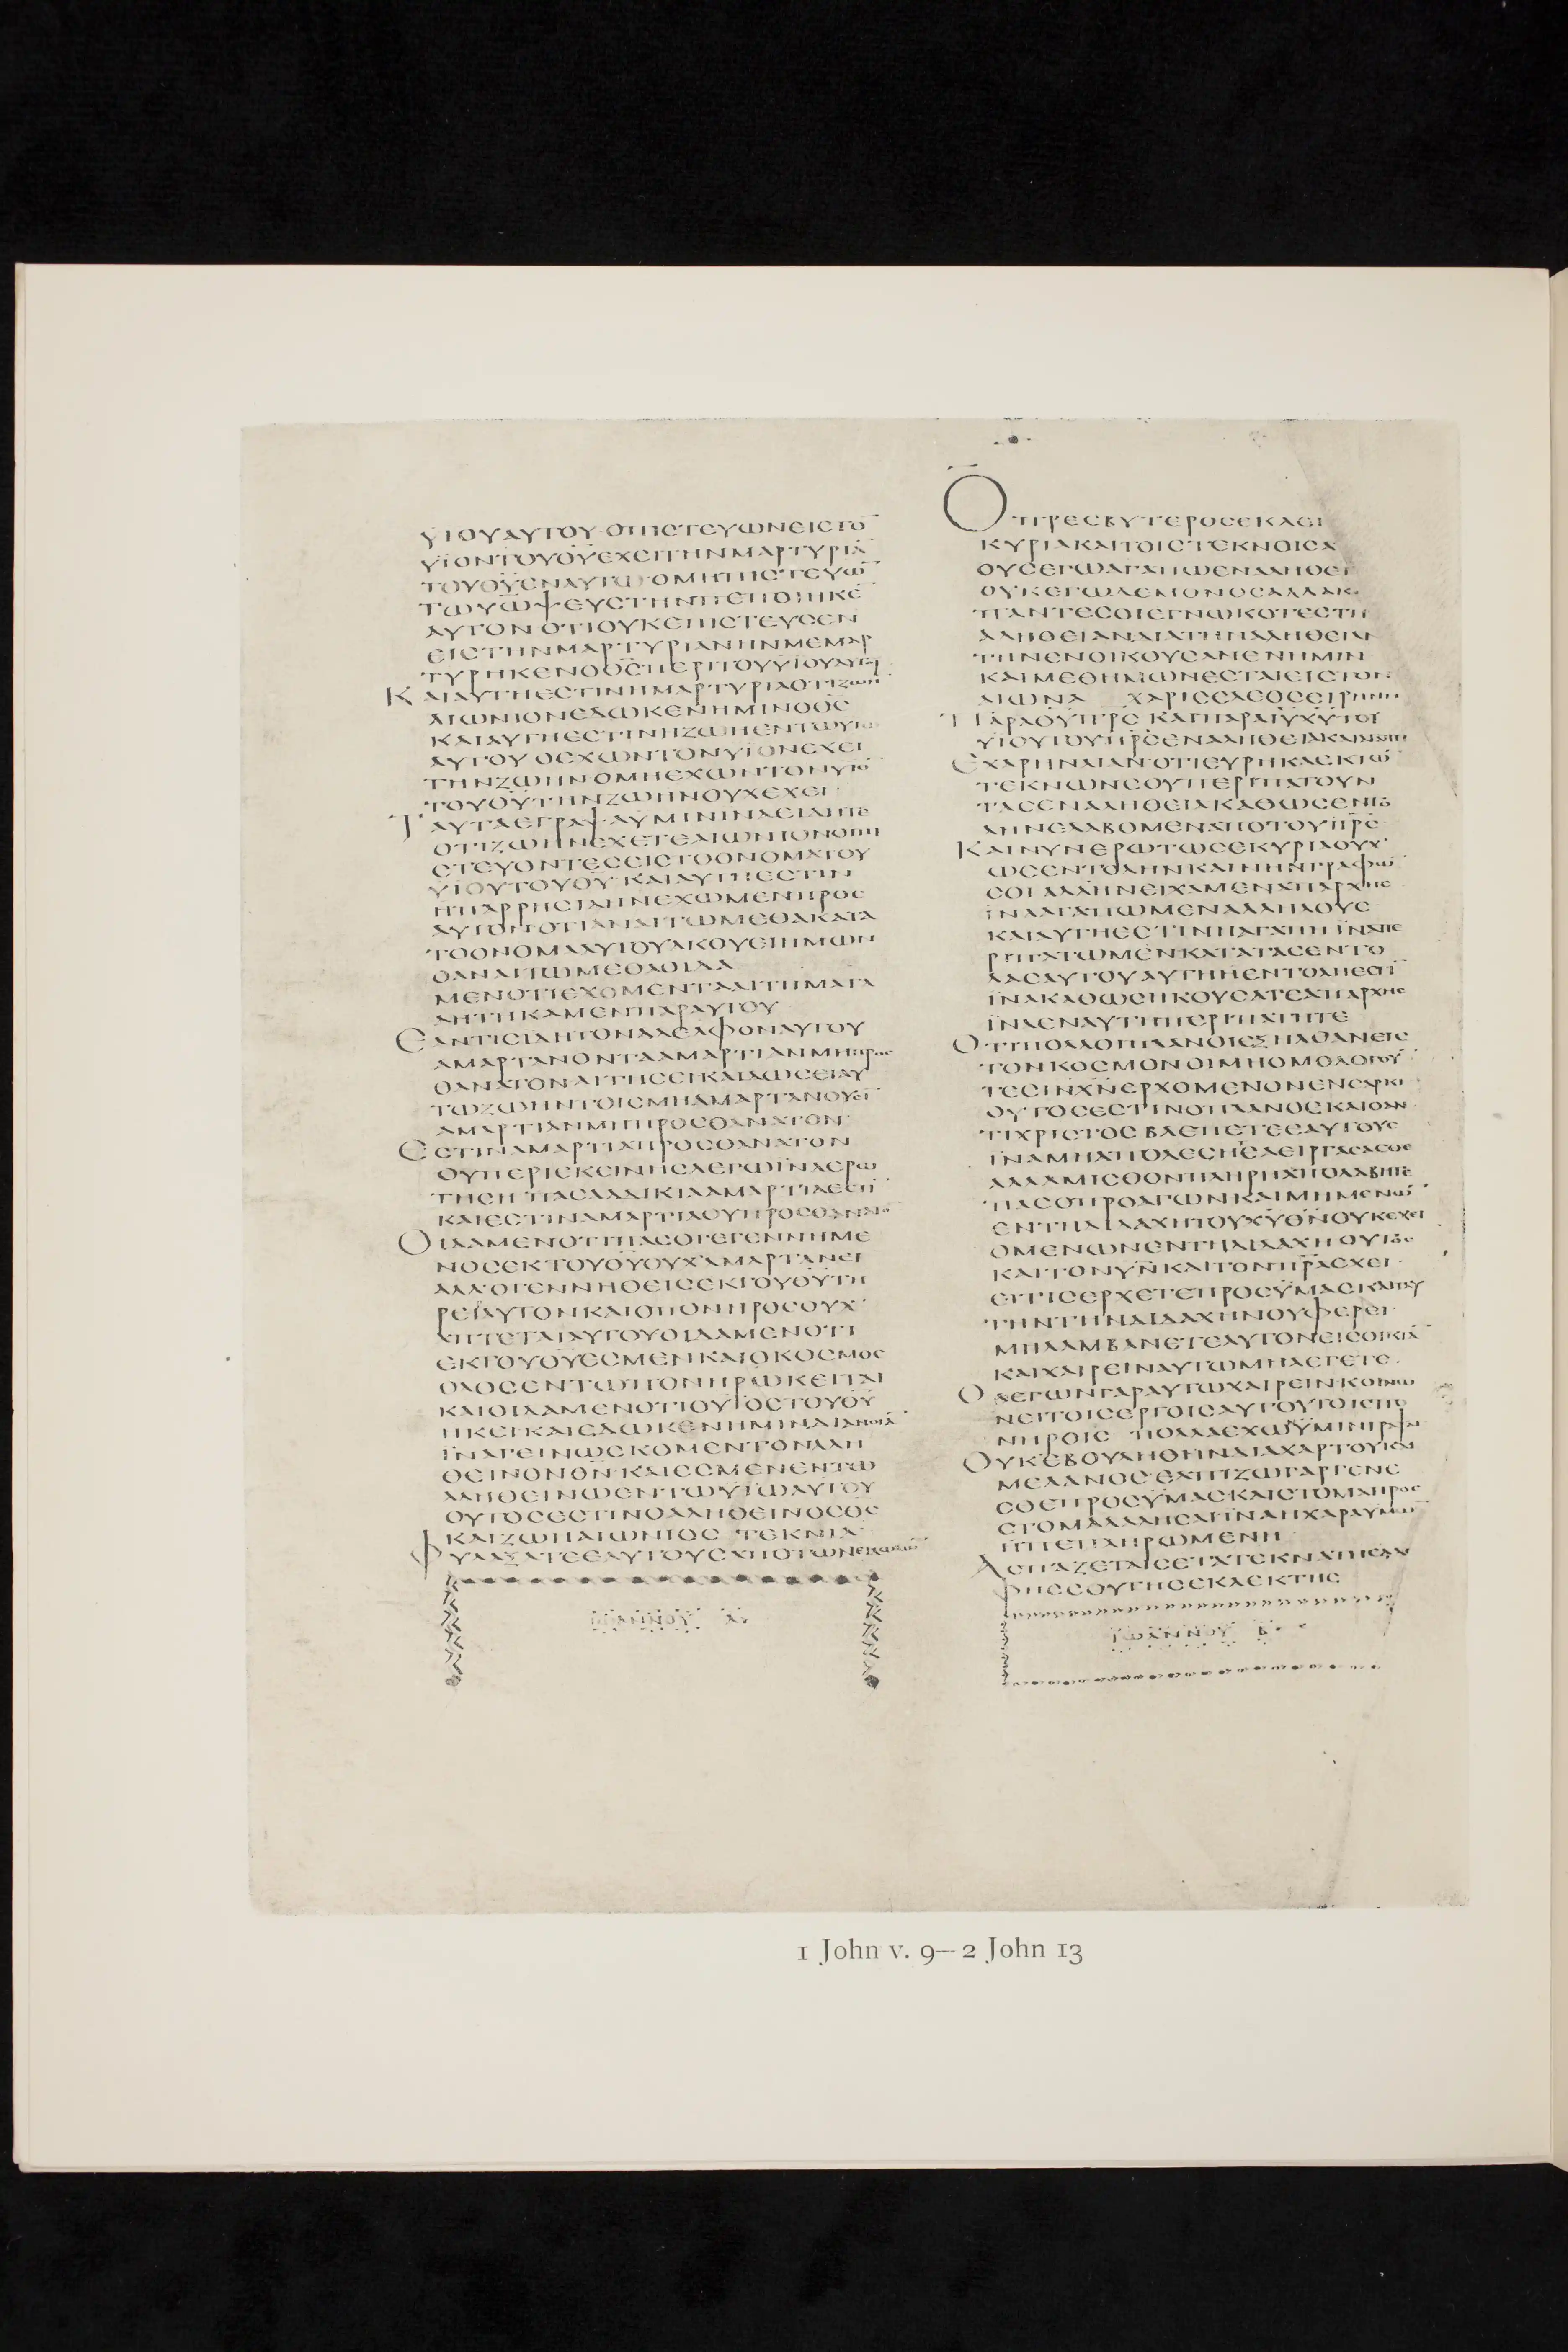 ΥΙΟΥΑΥΤΟΥ·ΟΠΙϹΤΕΥΩΝΕΙϹΤΟ̅
ΥΙΟΝΤΟΥΘ̅Υ̅ΕΧΕΙΤΗΝΜΑΡΤΥΡΙΑ̅
ΤΟΥΘ̅Υ̅ΕΝΑΥΤΩ ΟΜΗΠΙϹΤΕΥΩ̅
ΤΩΥ̅Ω̅ΨΕΥϹΤΗΝΠΕΠΟΙΗΚΕ̅
ΑΥΤΟΝ ΟΤΙΟΥΚΕΠΙϹΤΕΥϹΕΝ
ΕΙϹΤΗΝΜΑΡΤΥΡΙΑΝΗΝΜΕΜΑΡ
ΤΥΡΗΚΕΝΟΘ̅Ϲ̅ΠΕΡΙΤΟΥΥΙΟΥΑΥΤΟΥ
ΚΑΙΑΥΤΗΕϹΤΙΝΗΜΑΡΤΥΡΙΑΟΤΙΖΩΗ̅
ΑΙΩΝΙΟΝΕΔΩΚΕΝΗΜΙΝΟΘ̅Ϲ̅
ΚΑΙΑΥΤΗΕϹΤΙΝΗΖΩΗΕΝΤΩΥΙΩ
ΑΥΤΟΥ ΟΕΧΩΝΤΟΝΥΙΟΝΕΧΕΙ
ΤΗΝΖΩΗΝ ΟΜΗΕΧΩΝΤΟΝΥΙΟ̅
ΤΟΥΘ̅Υ̅ΤΗΝΖΩΗΝΟΥΧΕΧΕΙ·
ΤΑΥΤΑΕΓΡΑΨΑΥΜΙΝΙΝΑΕΙΔΗΤΕ
ΟΤΙΖΩΗΝΕΧΕΤΕΑΙΩΝΙΟΝΟΙΠΙ
ϹΤΕΥΟΝΤΕϹΕΙϹΤΟΟΝΟΜΑΤΟΥ
ΥΙΟΥΤΟΥΘ̅Υ̅ ΚΑΙΑΥΤΗΕϹΤΙΝ
ΗΠΑΡΡΗϹΙΑΗΝΕΧΩΜΕΝΠΡΟϹ
ΑΥΤΟΝΟΤΙΑΝΑΙΤΩΜΕΘΑΚΑΤΑ
ΤΟΟΝΟΜΑΑΥΤΟΥΑΚΟΥΕΙΗΜΩΝ
ΟΑΝΑΙΤΩΜΕΘΑΟΙΔΑ
ΜΕΝΟΤΙΕΧΟΜΕΝΤΑΑΙΤΗΜΑΤΑ
ΑΗΤΗΚΑΜΕΝΠΑΡΑΥΤΟΥ
ΕΑΝΤΙϹΙΔΗΤΟΝΑΔΕΛΦΟΝΑΥΤΟΥ
ΑΜΑΡΤΑΝΟΝΤΑΑΜΑΡΤΙΑΝΜΗΠΡΟϹ
ΘΑΝΑΤΟΝΑΙΤΗϹΕΙΚΑΙΔΩϹΕΙΑΥ
ΤΩΖΩΗΝΤΟΙϹΜΗΑΜΑΡΤΑΝΟΥϹΙ̅
ΑΜΑΡΤΙΑΝΜΗΠΡΟϹΘΑΝΑΤΟΝ·
ΕϹΤΙΝΑΜΑΡΤΙΑΠΡΟϹΘΑΝΑΤΟΝ
ΟΥΠΕΡΙΕΚΕΙΝΗϹΛΕΓΩΙΝΑΕΡΩ
ΤΗϹΗ ΠΑϹΑΑΔΙΚΙΑΑΜΑΡΤΙΑΕϹΤΙ̅
ΚΑΙΕϹΤΙΝΑΜΑΡΤΙΑΟΥΠΡΟϹΘΑΝΑΤΟ̅
ΟΙΔΑΜΕΝΟΤΙΠΑϹΟΓΕΓΕΝΝΗΜΕ
ΝΟϹΕΚΤΟΥΘ̅Υ̅ΟΥΧΑΜΑΡΤΑΝΕΙ
ΑΛΛΟΓΕΝΝΗΘΕΙϹΕΚΤΟΥΘ̅Υ̅ΤΗ
ΡΕΙΑΥΤΟΝΚΑΙΟΠΟΝΗΡΟϹΟΥΧ
ΑΠΤΕΤΑΙΑΥΤΟΥΟΙΔΑΜΕΝΟΤΙ
ΕΚΤΟΥΘ̅Υ̅ΕϹΜΕΝΚΑΙΟΚΟϹΜΟϹ
ΟΛΟϹΕΝΤΩΠΟΝΗΡΩΚΕΙΤΑΙ
ΚΑΙΟΙΔΑΜΕΝΟΤΙΟΥΙΟϹΤΟΥΘ̅Υ̅
ΗΚΕΙΚΑΙΕΔΩΚΕΝΗΜΙΝΔΙΑΝΟΙΑ̅
ΙΝΑΓΕΙΝΩϹΚΟΜΕΝΤΟΝΑΛΗ
ΘΕΙΝΟΝΘ̅Ν̅ ΚΑΙΕϹΜΕΝΕΝΤΩ
ΑΛΗΘΕΙΝΩΕΝΤΩΥΙΩΑΥΤΟΥ
ΟΥΤΟϹΕϹΤΙΝΟΑΛΗΘΕΙΝΟϹΘ̅Ϲ̅
ΚΑΙΖΩΗΑΙΩΝΙΟϹ ΤΕΚΝΙΑ
ΦΥΛΑΞΑΤΕΕΑΥΤΟΥϹΑΠΟΤΩΝΕΙΔΩΛΩ̅
ΙΩΑΝΝΟΥ Α
ΟΠΡΕϹΒΥΤΕΡΟϹΕΚΛΕΙ
ΚΥΡΙΑΚΑΙΤΟΙϹΤΕΚΝΟΙϹΑ
ΟΥϹΕΓΩΑΓΑΠΩΕΝΑΛΗΘΕΙ
ΟΥΚΕΓΩΔΕΜΟΝΟϹΑΛΛΑΚ
ΠΑΝΤΕϹΟΙΕΓΝΩΚΟΤΕϹΤΗ
ΑΛΗΘΕΙΑΝΔΙΑΤΗΝΑΛΗΘΕΙΑΝ
ΤΗΝΕΝΟΙΚΟΥϹΑΝΕΝΗΜΙΝ
ΚΑΙΜΕΘΗΜΩΝΕϹΤΑΙΕΙϹΤΟΝ
ΑΙΩΝΑ ΧΑΡΙϹΕΛΕΟϹΕΙΡΗΝΗ
ΠΑΡΑΘ̅Υ̅Π̅Ρ̅Ϲ̅ ΚΑΙΠΑΡΑΙ̅Υ̅Χ̅Υ̅ΤΟΥ
ΥΙΟΥΤΟΥΠ̅Ρ̅Ϲ̅ΕΝΑΛΗΘΕΙΑΚΑΙΑΓΑΠΗ
ΕΧΑΡΗΝΛΙΑΝΟΤΙΕΥΡΗΚΑΕΚΤΩ̅
ΤΕΚΝΩΝϹΟΥΠΕΡΙΠΑΤΟΥΝ
ΤΑϹΕΝΑΛΗΘΕΙΑΚΑΘΩϹΕΝΤΟ
ΛΗΝΕΛΑΒΟΜΕΝΑΠΟΤΟΥΠ̅Ρ̅Ϲ̅
ΚΑΙΝΥΝΕΡΩΤΩϹΕΚΥΡΙΑΟΥΧ
ΩϹΕΝΤΟΛΗΝΚΑΙΝΗΝΓΡΑΦΩ̅
ϹΟΙΑΛΛΗΝΕΙΧΑΜΕΝΑΠΑΡΧΗϹ
ΙΝΑΑΓΑΠΩΜΕΝΑΛΛΗΛΟΥϹ
ΚΑΙΑΥΤΗΕϹΤΙΝΗΑΓΑΠΗΙΝΑΠΕ
ΡΙΠΑΤΩΜΕΝΚΑΤΑΤΑϹΕΝΤΟ
ΛΑϹΑΥΤΟΥΑΥΤΗΗΕΝΤΟΛΗΕϹΤΙ̅
ΙΝΑΚΑΘΩϹΗΚΟΥϹΑΤΕΑΠΑΡΧΗϹ
ΙΝΑΕΝΑΥΤΗΠΕΡΙΠΑΤΗΤΕ
ΟΤΙΠΟΛΛΟΙΠΛΑΝΟΙΕΞΗΛΘΑΝΕΙϹ
ΤΟΝΚΟϹΜΟΝΟΙΜΗΟΜΟΛΟΓΟΥ̅
ΤΕϹΙ̅Ν̅Χ̅Ν̅ΕΡΧΟΜΕΝΟΝΕΝϹΑΡΚΙ
ΟΥΤΟϹΕϹΤΙΝΟΠΛΑΝΟϹΚΑΙΟΑΝ
ΤΙΧΡΙϹΤΟϹ ΒΛΕΠΕΤΕΕΑΥΤΟΥϹ
ΙΝΑΜΗΑΠΟΛΕϹΗΤΕΑΕΙΡΓΑϹΑϹΘΕ
ΑΛΛΑΜΙϹΘΟΝΠΛΗΡΗΑΠΟΛΑΒΗΤΕ
ΠΑϹΟΠΡΟΑΓΩΝΚΑΙΜΗΜΕΝΩ̅
ΕΝΤΗΔΙΔΑΧΗΤΟΥΧ̅Υ̅Θ̅Ν̅ΟΥΚΕΧΕΙ
ΟΜΕΝΩΝΕΝΤΗΔΙΔΑΧΗ ΟΥΤΟϹ
ΚΑΙΤΟΝΥ̅Ν̅ΚΑΙΤΟΝΠ̅Ρ̅Α̅ΕΧΕΙ·
ΕΙΤΙϹΕΡΧΕΤΕΠΡΟϹΥΜΑϹΚΑΙΤΑΥ
ΤΗΝΤΗΝΔΙΔΑΧΗΝΟΥΦΕΡΕΙ·
ΜΗΛΑΜΒΑΝΕΤΕΑΥΤΟΝΕΙϹΟΙΚΙΑ̅
ΚΑΙΧΑΙΡΕΙΝΑΥΤΩΜΗΛΕΓΕΤΕ·
ΟΛΕΓΩΝΓΑΡΑΥΤΩΧΑΙΡΕΙΝΚΟΙΝΩ
ΝΕΙΤΟΙϹΕΡΓΟΙϹΑΥΤΟΥΤΟΙϹΠΟ
ΝΗΡΟΙϹ ΠΟΛΛΑΕΧΩΥΜΙΝΓΡΑΨΑΙ
ΟΥΚΕΒΟΥΛΗΘΗΝΔΙΑΧΑΡΤΟΥΚΑΙ
ΜΕΛΑΝΟϹΕΛΠΙΖΩΓΑΡΓΕΝΕ
ϹΘΕΠΡΟϹΥΜΑϹΚΑΙϹΤΟΜΑΠΡΟϹ
ϹΤΟΜΑΛΑΛΗϹΑΙΙΝΑΗΧΑΡΑΥΜΩ̅
ΗΠΕΠΛΗΡΩΜΕΝΗ
ΑϹΠΑΖΕΤΑΙϹΕΤΑΤΕΚΝΑΤΗϹΑΔΕΛ
ΦΗϹϹΟΥΤΗϹΕΚΛΕΚΤΗϹ
ΙΩΑΝΝΟΥ Β
1 John v. 9—2 John 13